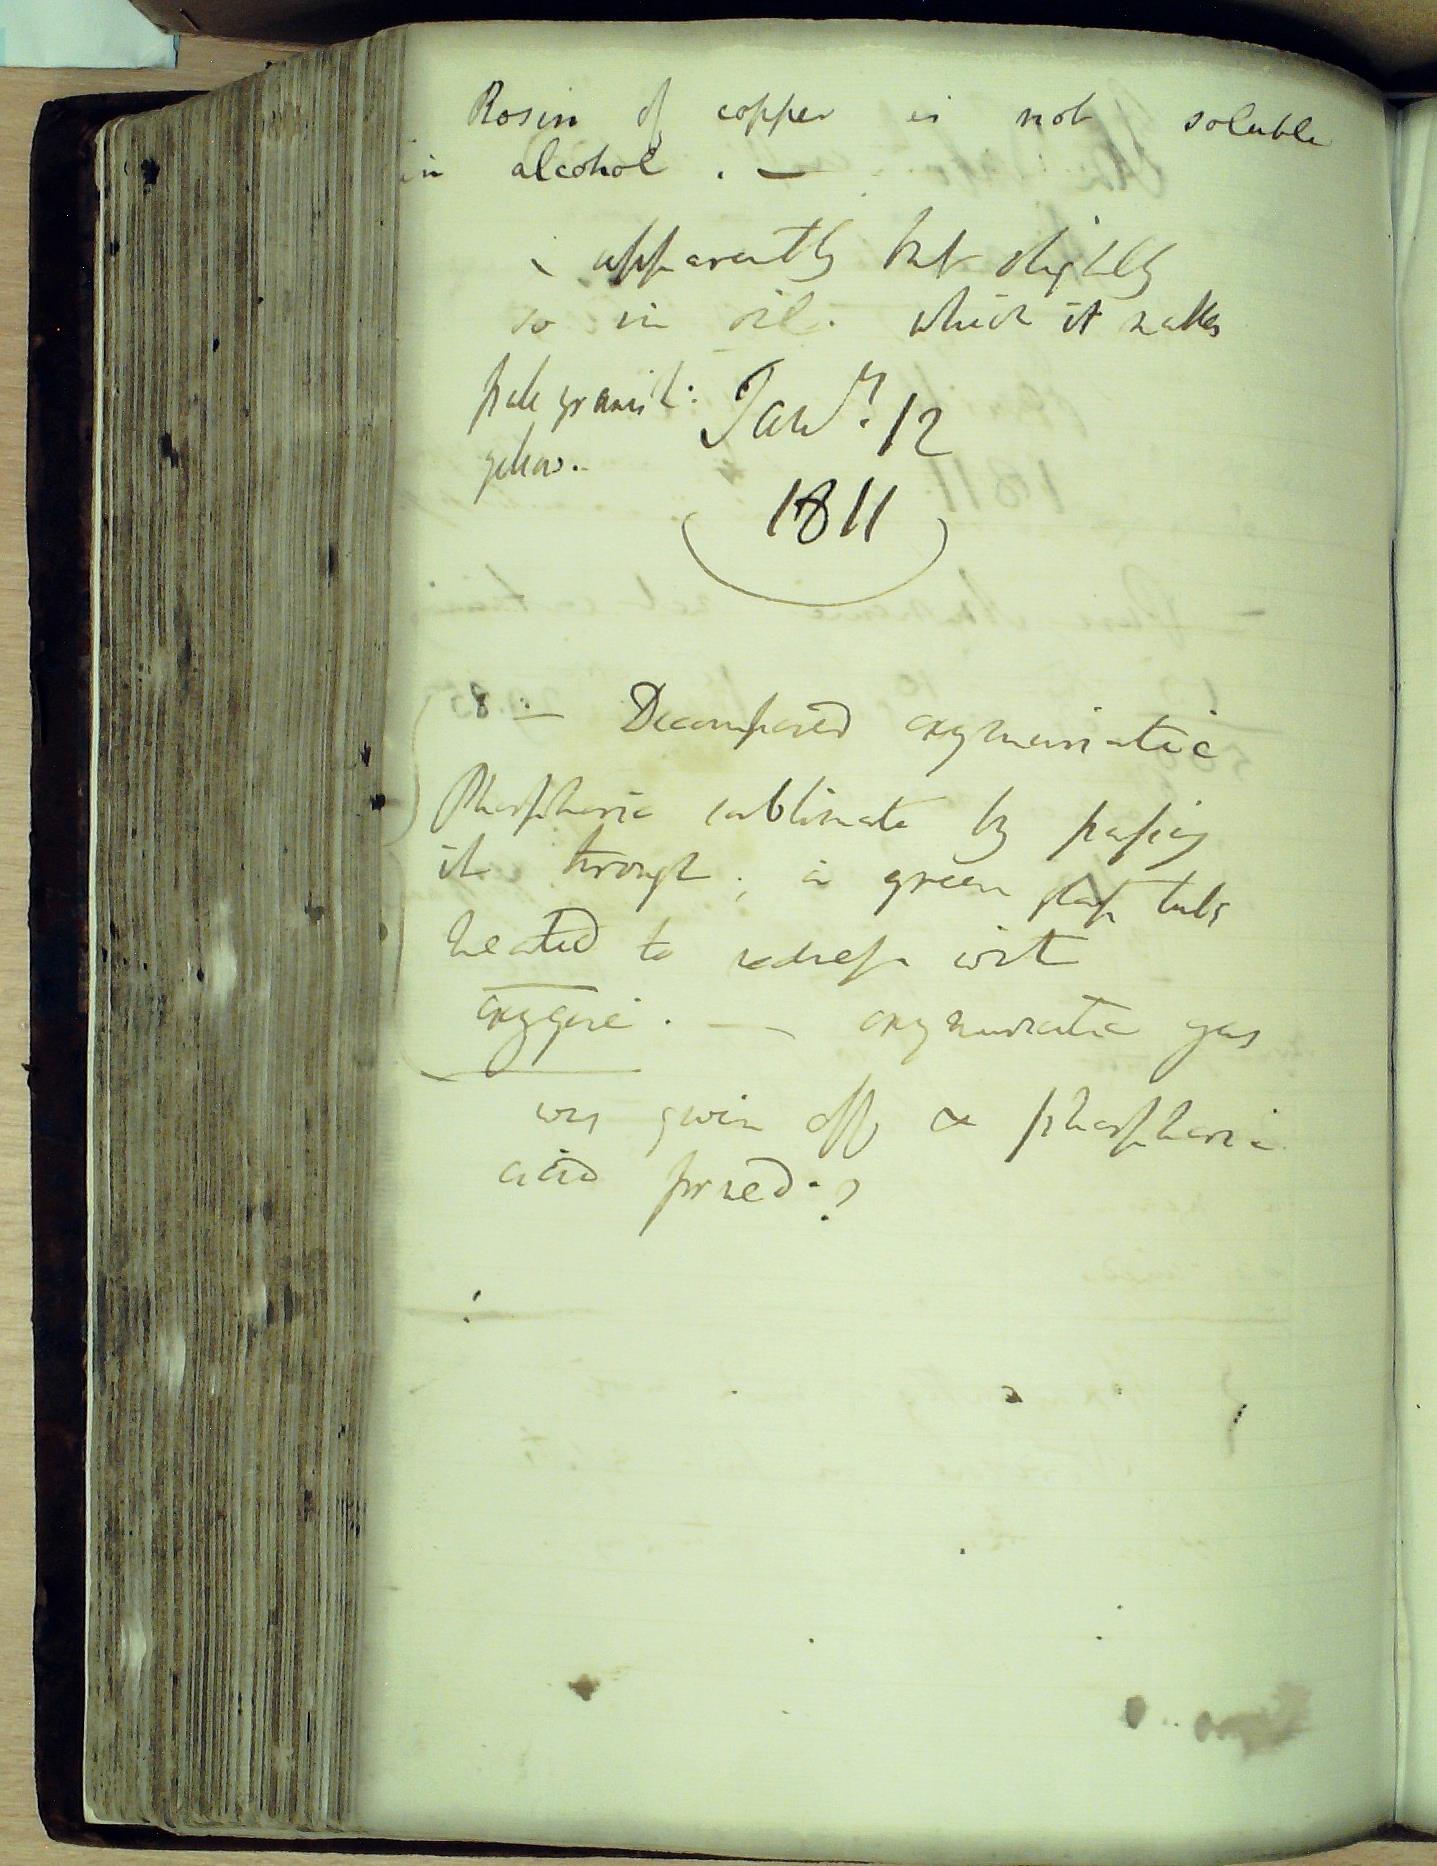 Rosin of copper is not soluble
in alcohol . —
apparently but slightly
so in oil. which it makes
pale greenish:
yellow.
Jany. 12
1811
8 — Decomposed oxymuriatic
Phosphoric sublimate by passing
it through ; a green glass tube
heated to redness with
oxygene . — oxymuriatic gas
was given off & phosphoric
acid formed.?